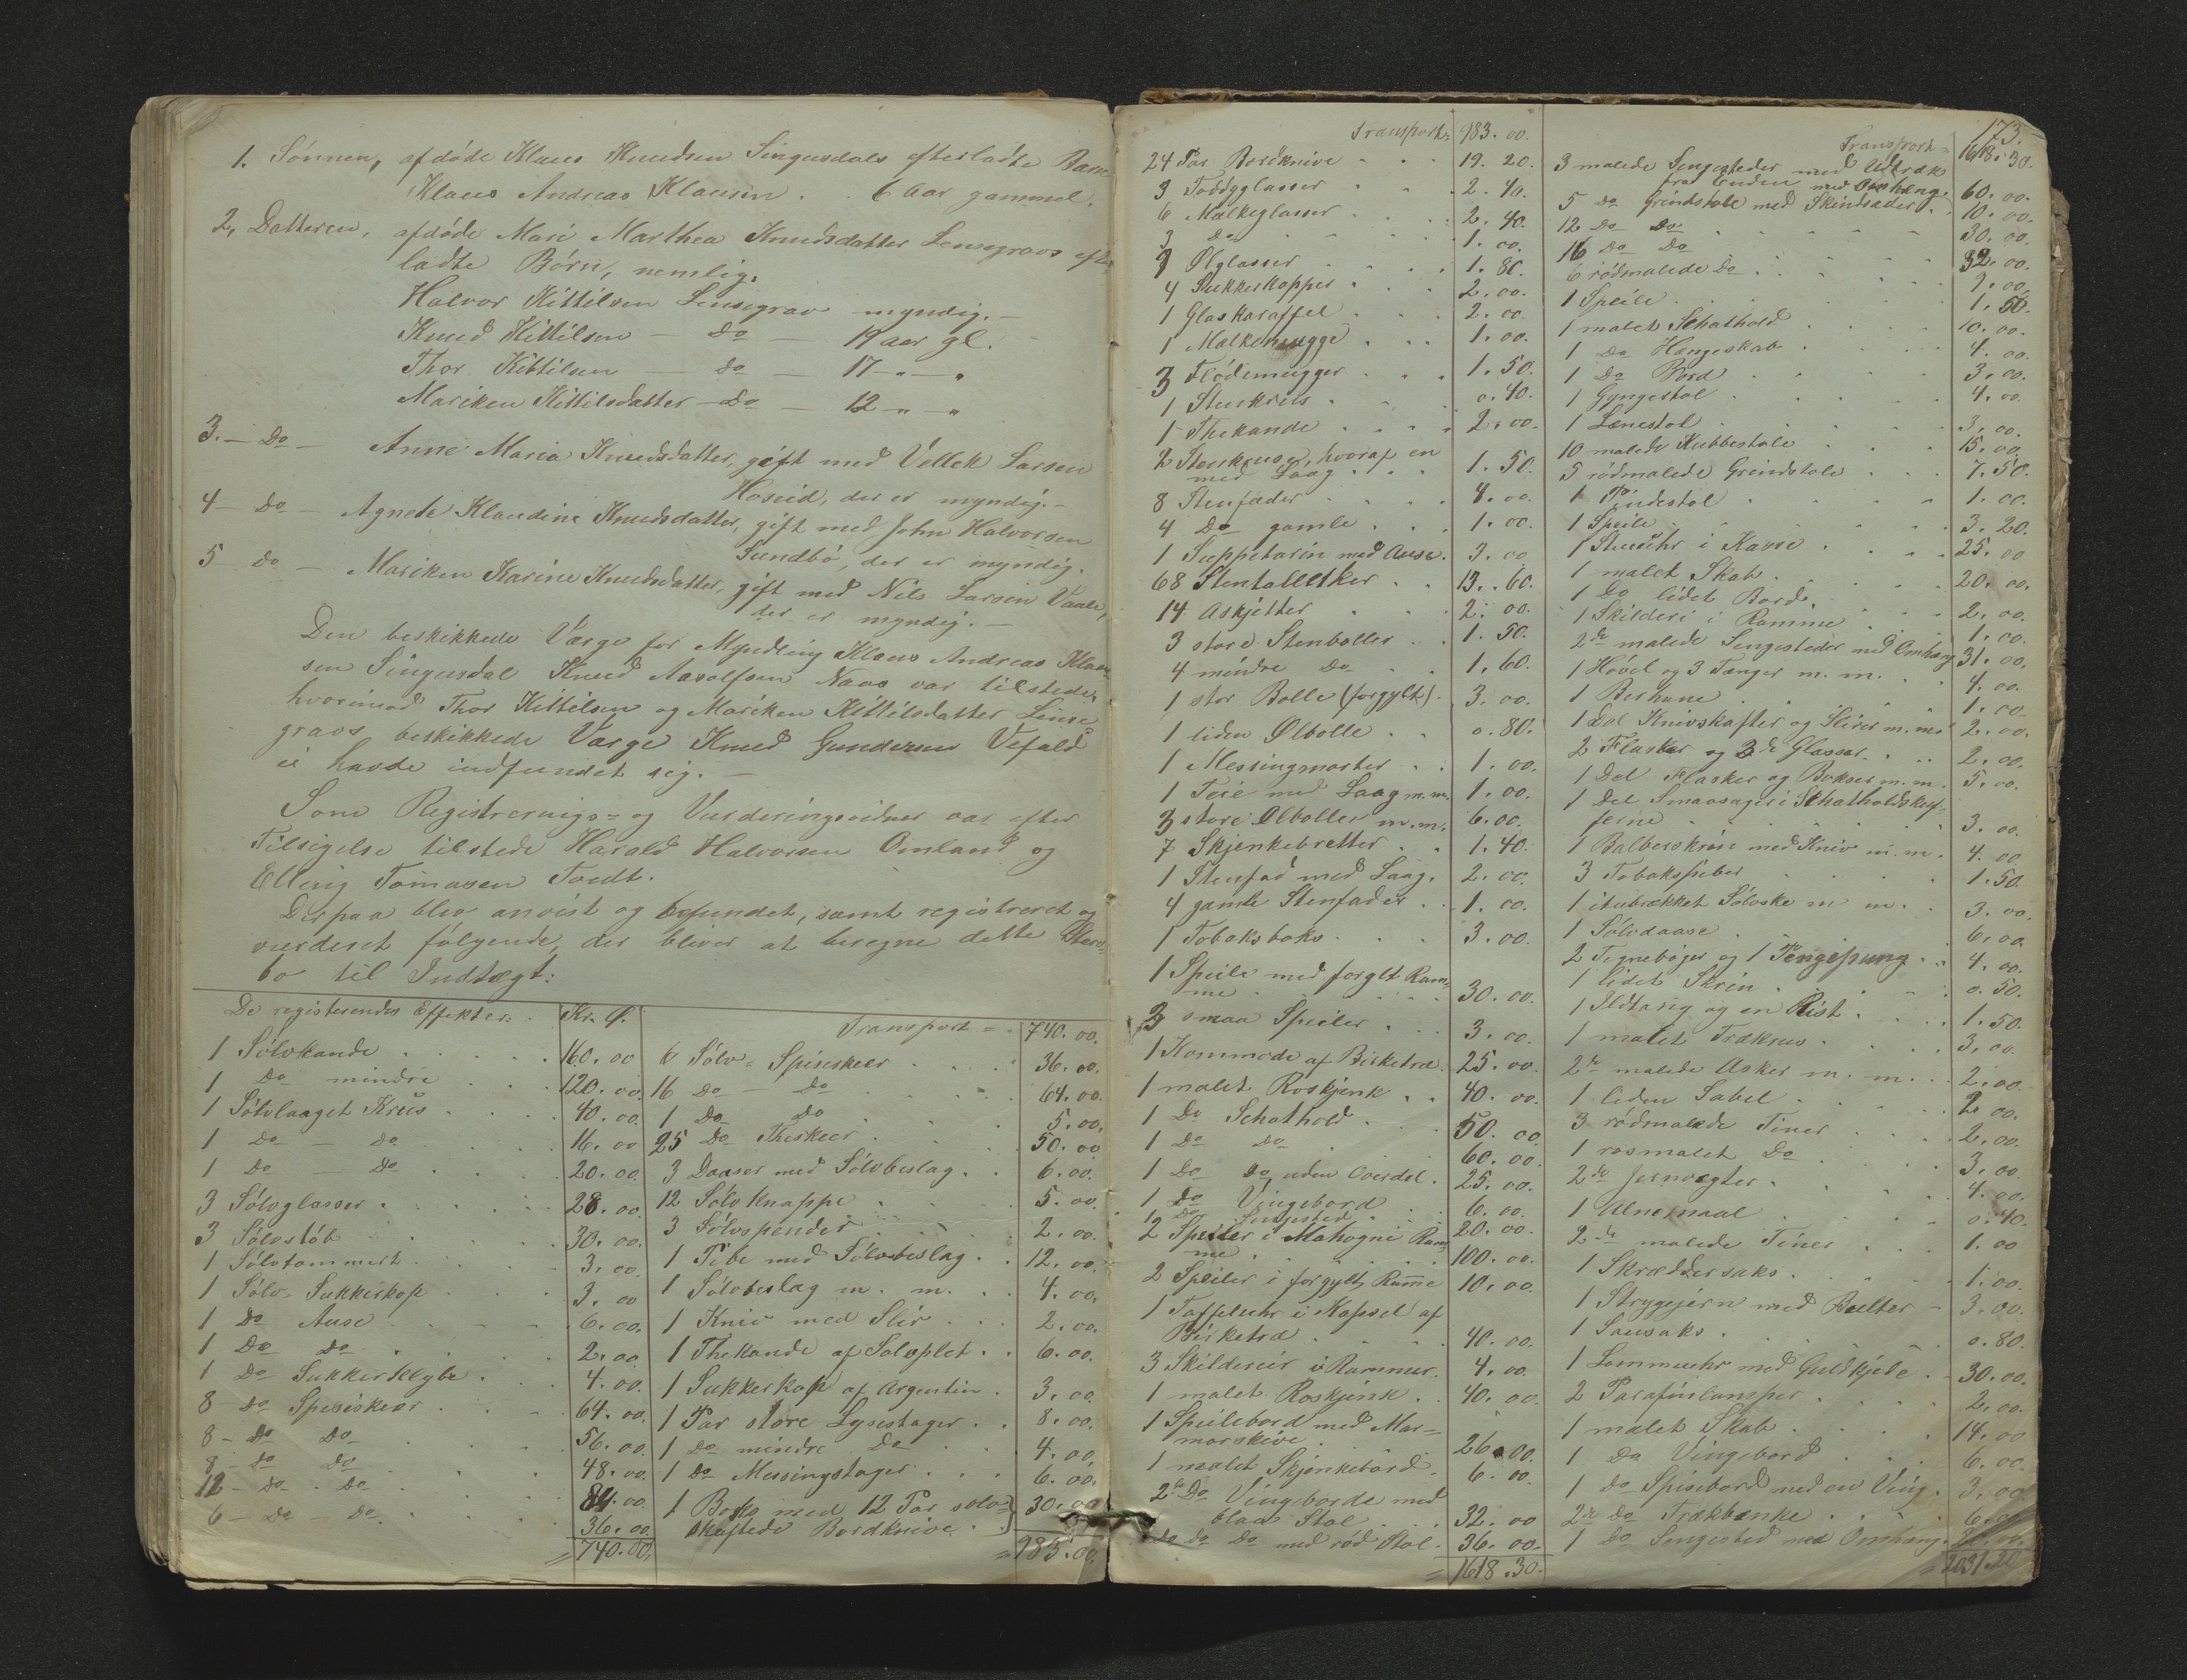 1. Sönnen, afdöde Klaus Knudsen Singusdals efterladte Barn
Klaus Andreas Klausen. 6 aar gammel.
2, Datteren, afdöde Mari Marthea Knudsdatter Lensegravs efter-
ladte Börn, nemlig:
Halvor Kittilsen Lensegrav myndig. —
Knud Kittilsen — Do — 19 aar gl.
Thor Kittilsen — do — 17 - " - "
Mariken Kittilsdatter - Do — 12 - " - "
3. — Do — Anne Maria Knudsdatter, gift med Vellek Larsen
Hoseid, der er myndig. —
4 — Do — Agnete Klaudine Knudsdatter, gift med John Halvorsen
Sundbö, der er myndig.
5 — do — Mariken Karine Knudsdatter, gift med Nils Larsen Vaale,
der er myndig. —
Den beskikkede Værge for Myndling Klaus Andreas Klau-
sen Singusdal Knud Aasolfsen Naas var tilstede,
hvorimod Thor Kittilsen og Mariken Kittilsdatter Lense-
gravs beskikkede Værge Knud Gundersen Vefald
ei havde indfundet sig. —
Som Registrerings- og Vurderingsvidner var efter
Tilsigelse tilstede Harald Halvorsen Omland og
Elling Tomasen Tvedt.
Derpaa blev anvist og befundet, samt registreret og
vurderet fölgende, der bliver at beregne dette Sterv-
bo til Indtægt:
De registerendes Effekter: Kr. Ø.
1 Sölvkande 160. 00
1 Do mindre 120. 00
1 Sölvlaaget Krus 40. 00.
1 Do — Do 16. 00
1 Do — Do 20. 00
3 Sölvglasser 28. 00.
3 Sölvstöb 30. 00.
1 Sölvtommert 3. 00
1 Sölv-Sukkerkop 3. 00
1 Do Ause 6. 00.
1 Do Do 2. 00
1 Do Sukkerklybe 4. 00.
8 - Do Spiseskeer 64. 00.
8 - Do Do 56. 00.
8 - Do Do 48. 00.
12 - Do - Do 84. 00
6 - Do - Do 36. 00.
= 740. 00.
Transport = 740. 00.
6 Sölv-Spiseskeer 36. 00.
16 Do — Do 64. 00.
1 Do Do 5. 00.
25 Do Theskeer 50. 00
3 Daaser med Sölvbeslag 6. 00.
12 Sölv Knappe 5. 00.
3 Sölvspender 2. 00.
1 Pibe med Sölvbeslag 12. 00.
1 Sölvbeslag m. m. 4. 00.
1 Kniv med Slir 2. 00.
1 Thekande af Sölvplet 6. 00.
1 Sukkerkop af Argentin 3. 00
1 Par store Lysestager 8. 00.
1 Do mindre Do 4. 00
1 Do Messingstager 6. 00.
1 Boks med 12 Par sölv-
skaftede Bordknive 30. 00
= 983. 00.
Transport = 983. 00.
24 Par Bordknive 19. 20.
3 Toddyglasser 2. 40.
6 Mælkeglasser 2. 40.
3 Do 1. 00.
9 Ølglasser 1. 80.
4 Sukkerkopper 2. 00.
1 Glaskaraffel 2. 00.
1 Mælkemugge 1. 00.
3 Flödemugger 1. 50.
1 Stenkrus 0. 40.
1 Thekande 2. 00.
2 Stenkruse, hvoraf en
med Laag 1. 50.
8 Stenfader 4. 00.
4 Do gamle 1. 00.
1 Suppeterin med Ause 3. 00
68 Stentallerker 13. 60.
14 Askjetter 2. 00.
3 store Stenboller 1. 50.
4 mindre Do 1. 60.
1 stor Bolle (forgylt) 3. 00.
1 liden Ølbolle 0. 80.
1 Messingmorter 1. 00.
1 Teie med Laag m. m. 1. 00.
3 store Ølboller m. m. 6. 00.
7 Skjenkebretter 1. 40.
1 Stenfad med Laag 2. 00.
4 gamle Stenfader 1. 00.
1 Tobaksboks 3. 00.
1 Speile med forgylt Ram-
me 30. 00.
3 smaa Speiler 3. 00.
1 Kommode af Birketræ 25. 00.
1 malet Roskjenk 40. 00.
1 Do Schathold 50. 00.
1 Do Do 60. 00.
1 Do Do uden Overdel 25. 00.
1 Do Vingebord 6. 00.
1 Do Sengested 20. 00.
2 Speiler i Mahogni Ram-
me 100. 00.
2 Speiler i forgylt Ramme 10. 00.
1 Taffeluhr i Kapsel af
Birketræ 40. 00.
3 Skilderier i Rammer 4. 00
1 malet Roskjenk 40. 00
1 Speilebord med Mar-
morskive 26. 00.
1 malet Skjenkebord 6. 00.
2de Do Vingeborde med
blaa Stol 32. 00
Do Do Do med röd Stol 36. 00.
= 1618. 30.
173.
Transport = 1618. 30.
3 malede Sengesteder med Udtræk
fra Enden med Omhæng 60. 00.
5 Do Grindstole med Skindsæder 10. 00.
12 Do Do 30. 00.
16 Do Do 32. 00.
6 rödmalede Do 9. 00.
1 Speile 1. 50.
1 malet Schathold 10. 00.
1 Do Hængeskab 4. 00.
1 Do Bord 3. 00.
1 Gyngestol 4. 00.
1 Lænestol 3. 00.
10 malede Kubbestole 15. 00.
5 rödmalede Grindstole 7. 50.
1 Pindestol 1. 00.
1 Speile 3. 20.
1 Stueuhr i Kasse 25. 00
1 malet Skab 20. 00.
1 Do lidet Bord 2. 00.
1 Skilderi i Ramme 1. 00.
2de malede Sengesteder med Omhæng 31. 00.
1 Hövel og 3 Tænger m. m. 4. 00.
1 Berhane 1. 00
1 Del Knivskafter og Slirer m. m. 2. 00.
2 Flasker og 3de Glasser 2. 00.
1 Del Flasker og Bokser m. m. 5. 00.
1 Del Smaasager i Schatholdskuf-
ferne 3. 00.
1 Balberskrin med Kniv m. m. 4. 00
3 Tobakspiber 1. 50.
1 itubrækket Sölvske m m. 3. 00.
1 Sölvdaase 6. 00.
2 Tegneböger og 1 Pengepung 4. 00.
1 lidet Skrin 0. 50.
1 Ildtarig og en Rist 1. 50.
1 malet Trækrus 3. 00.
2de malede Asker m. m. 2. 00.
1 liden Sabel 2. 00.
3 rödmalede Tiner 2. 00.
1 rosmalet Do 3. 00.
2de Jernvægter 4. 00.
1 Alnemaal 0. 40.
2de malede Tiner 1. 00
1 Skræddersaks 1. 00.
1 Strygejern med Bolter 3. 00.
1 Sausaks 0. 80.
1 Lommeuhr med Guldkjede 30. 00.
2 Parafinlamper 2. 00.
1 malet Skab 14. 00
1 Do Vingebord 6. 00.
1 Do Spisebord med en Ving 3. 00
2de Do Trækbænke 6. 00
1 Do Sengested med Omhæng
= 2031. 20